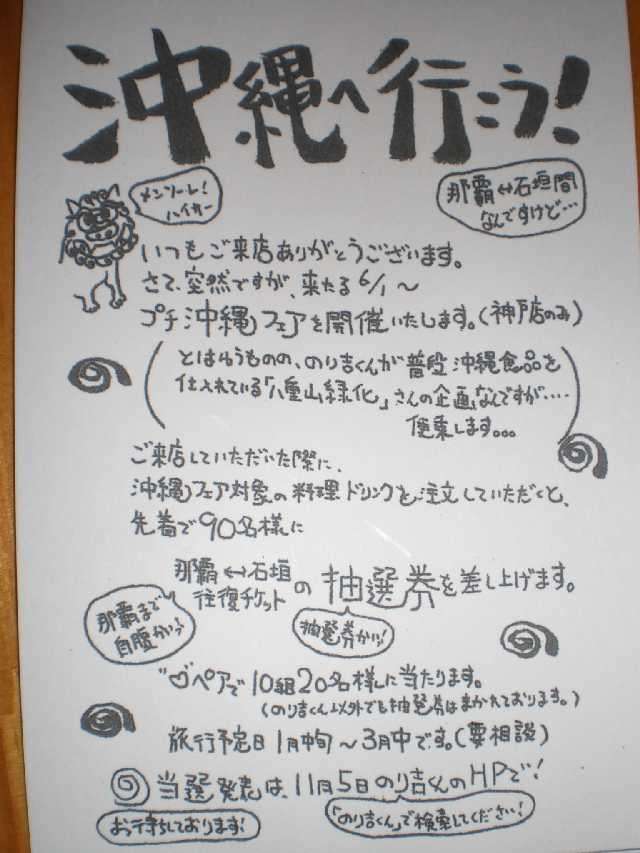 沖縄へ行こう!
メンソーレ!
ハイサー
那覇↔石垣間
なんですけど…
いつもご来店ありがとうございます。
さて、突然ですが、来たる6/1～
プチ沖縄フェアを開催いたします。(神戸店のみ)
(とはゆうものの、のり吉くんが普段沖縄食品を
仕入れている「八重山緑化」さんの企画なんですが‥‥
便乗します。。。)
ご来店していただいた際に、
沖縄フェア対象の料理ドリンクを注文していただくと、
先着で90名様に
那覇↔石垣
往復チケット の 抽選券を差し上げます。
那覇まで
自腹かっ!
抽選券かい!
"♡ペアで10組20名様に当たります。
(のり吉くん以外でも抽選券はまかれております。)
旅行予定日1月中旬～3月中です。(要相談)
当選発表は、11月5日のり吉くんのHPで!
お待ちしております!
「のり吉くん」で検索してください!